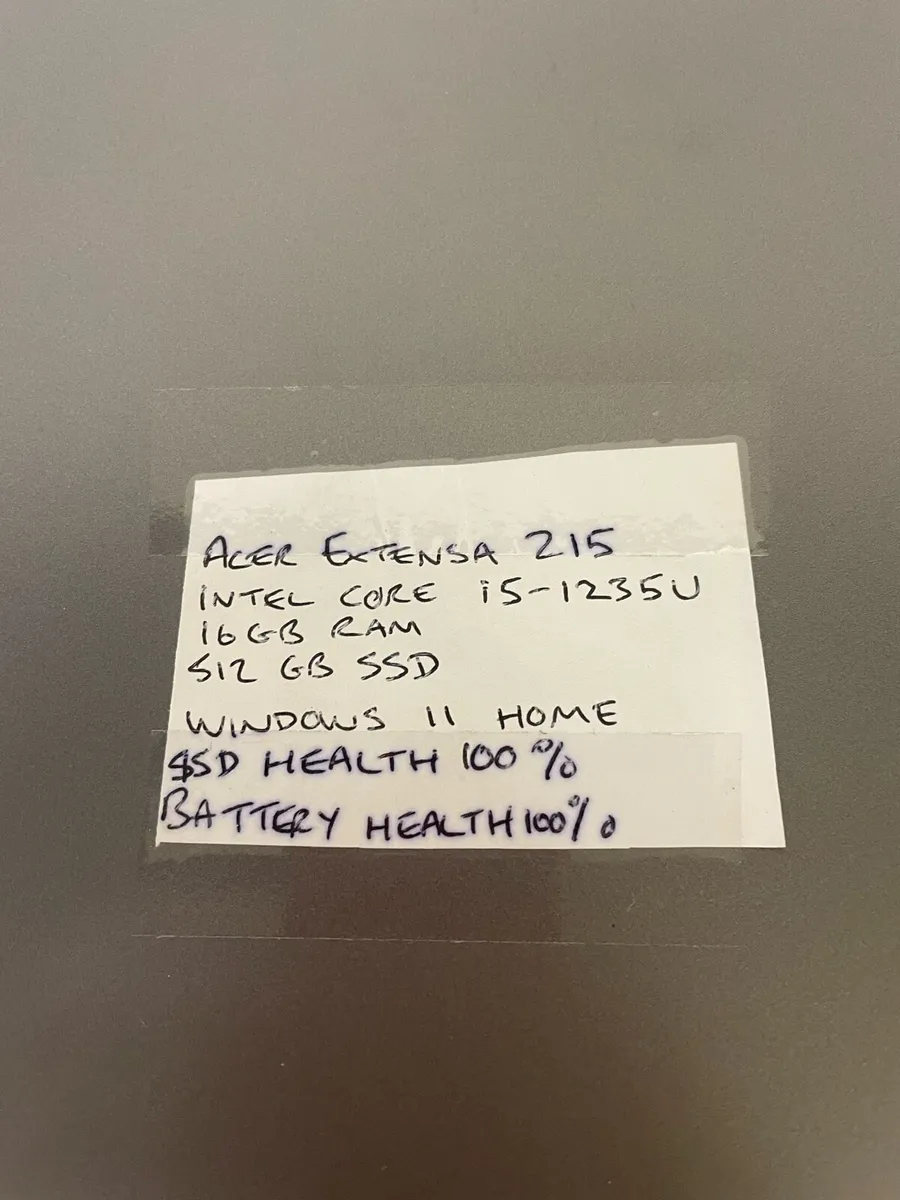 ACER EXTENSA 215
INTEL CORE i5-1235U
16GB RAM
512 GB SSD
WINDOWS 11 HOME
SSD HEALTH 100%
BATTERY HEALTH 100%